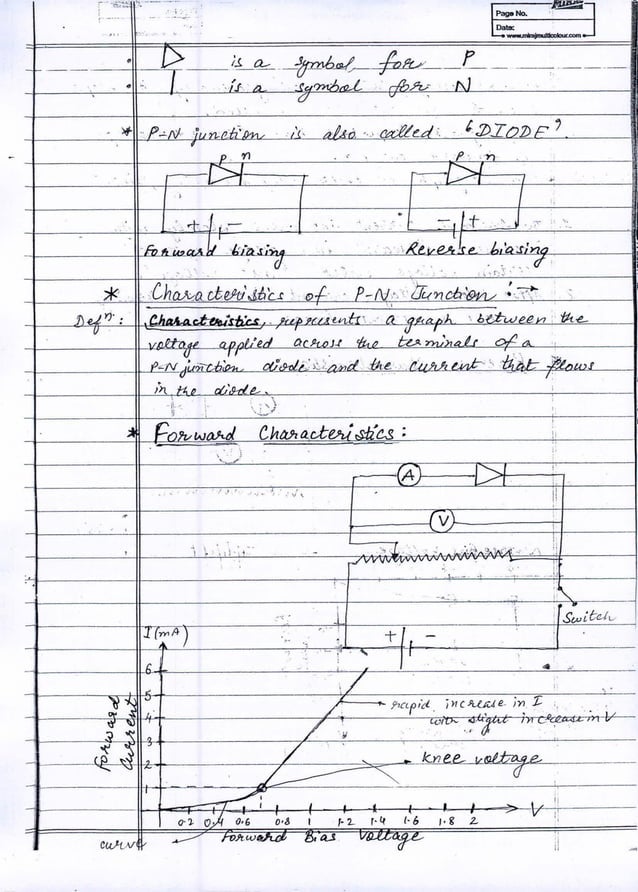 Page No.
Date:
www.mirajmulticolour.com
is a symbol for P
is a symbol for N
* P-N junction is also called 'DIODE'.
P n
P n
+ -
- +
Forward biasing
Reverse biasing
* Characteristics of P-N Junction :→
Defn: Characteristics, represents a graph between the
voltage applied across the terminals of a
P-N junction diode and the current that flows
in the diode.
* Forward Characteristics :
A
V
Switch
+ -
I (mA)
6
5
4
3
2
1
Forward
Current
rapid increase in I
with slight increase in V
knee voltage
V
0.2 0.4 0.6 0.8 1 1.2 1.4 1.6 1.8 2
Forward Bias Voltage
curve